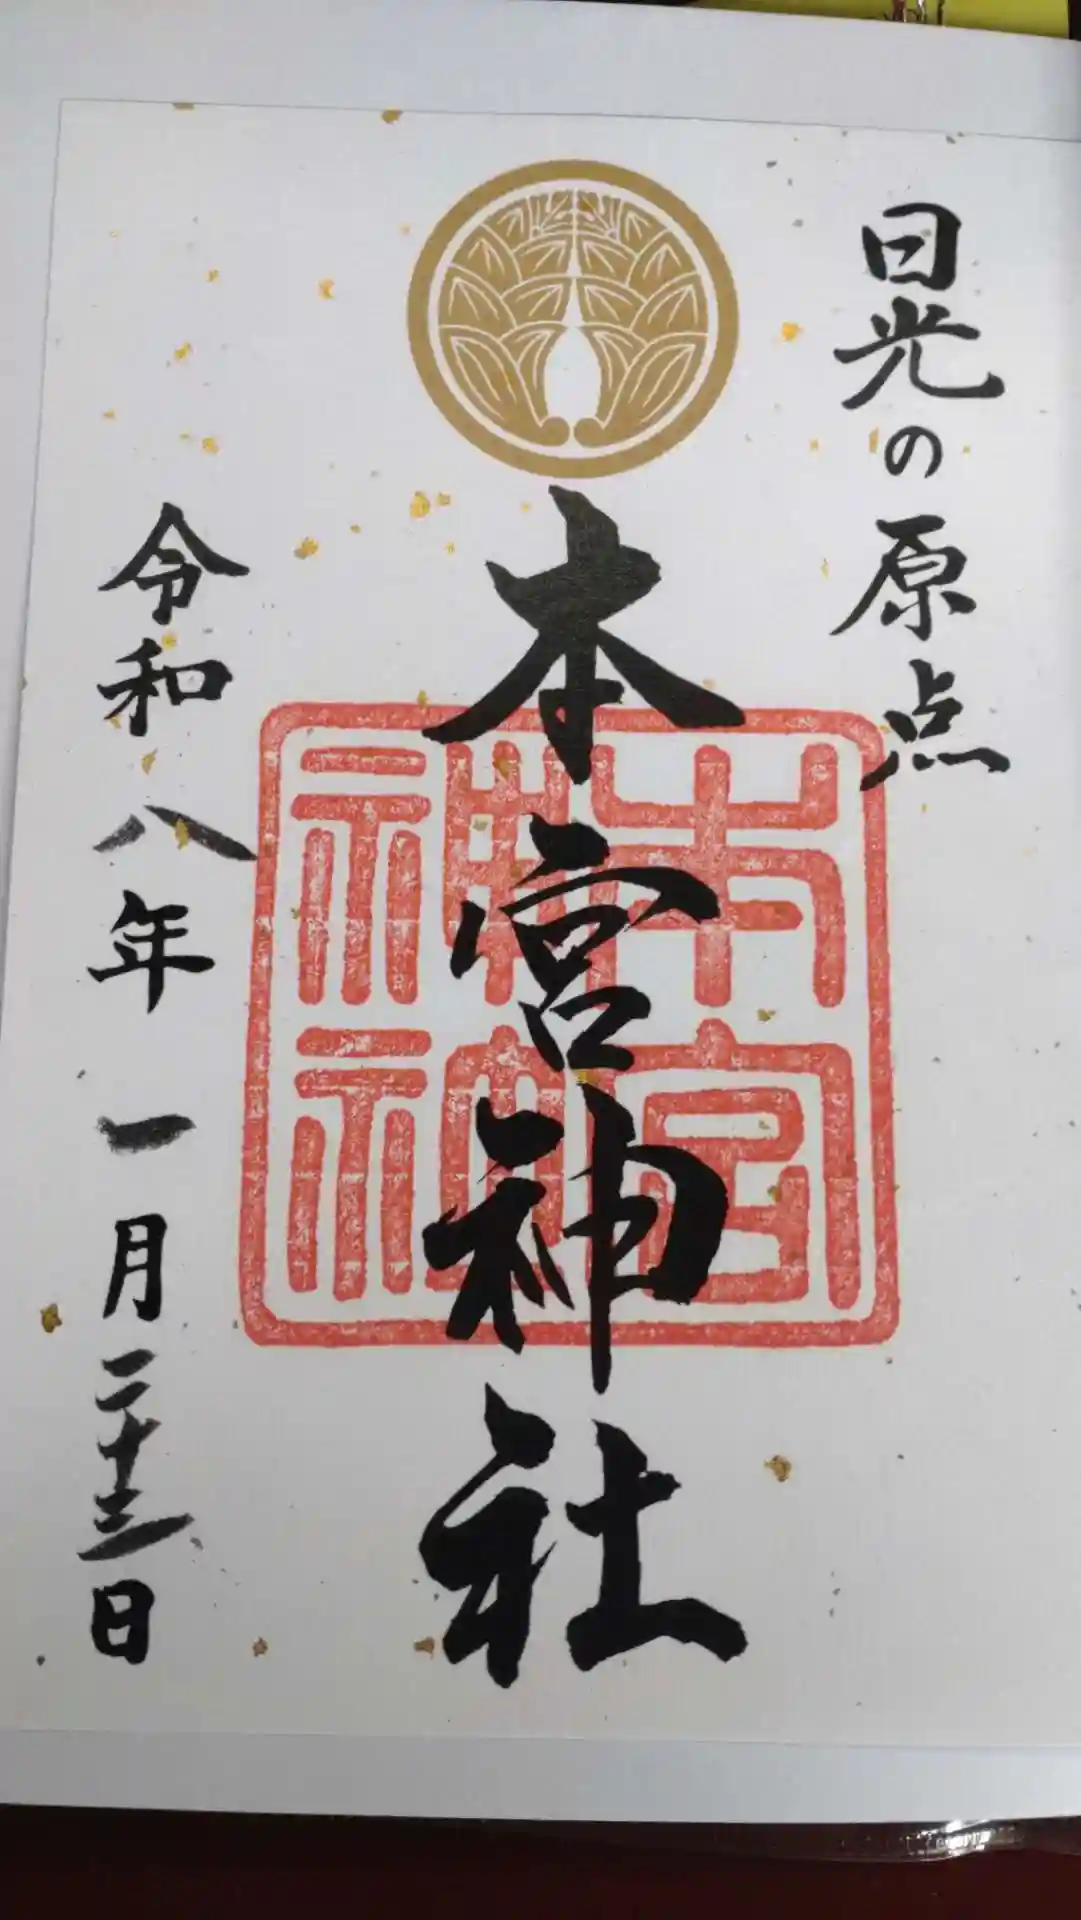 日光の原点
本宮神社
令和八年一月二十三日